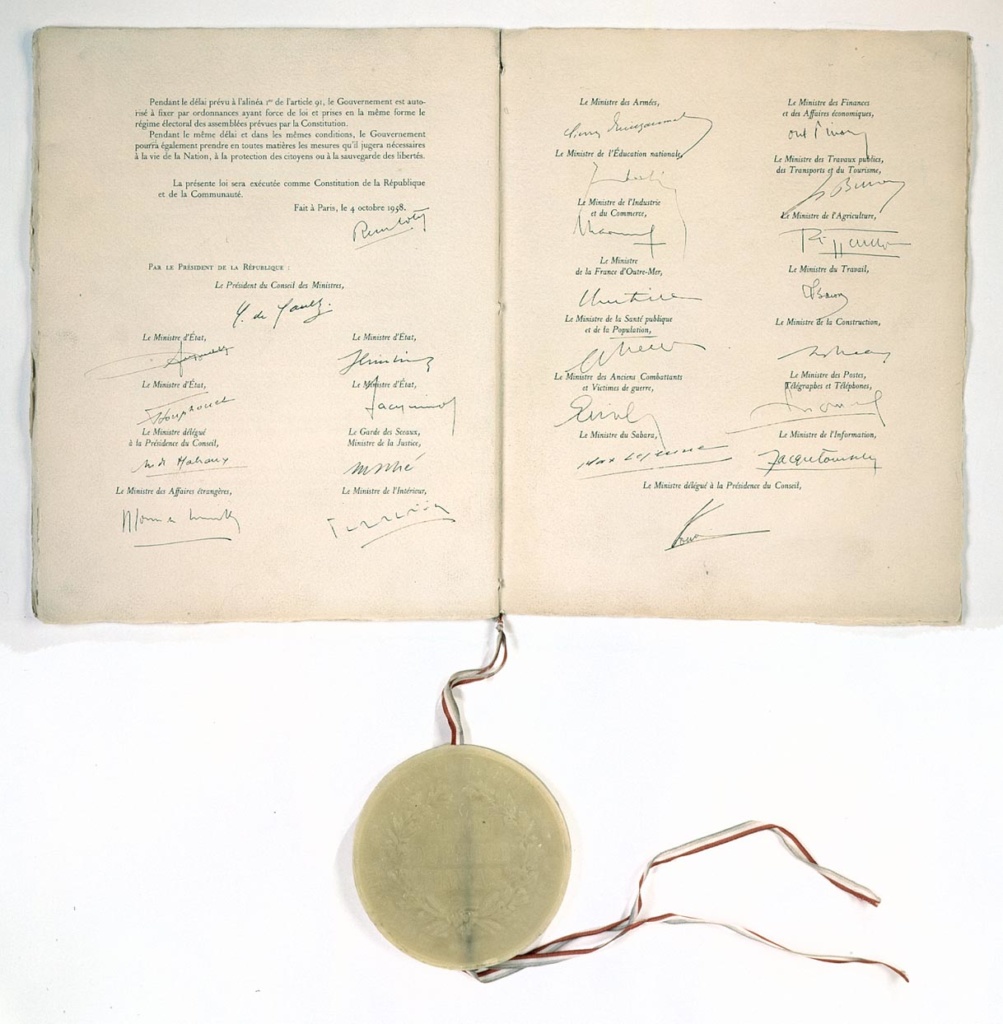 Pendant le délai prévu à l'alinéa 1er de l'article 91, le Gouvernement est auto-
risé à fixer par ordonnances ayant force de loi et prises en la même forme le
régime électoral des assemblées prévues par la Constitution.
Pendant le même délai et dans les mêmes conditions, le Gouvernement
pourra également prendre en toutes matières les mesures qu'il jugera nécessaires
à la vie de la Nation, à la protection des citoyens ou à la sauvegarde des libertés.
La présente loi sera exécutée comme Constitution de la République
et de la Communauté.
Fait à Paris, le 4 octobre 1958.
Par le Président de la République :
Le Président du Conseil des Ministres,
Le Ministre d'État,
Le Ministre d'État,
Le Ministre d'État,
Le Ministre d'État,
Jacquinot
Le Ministre délégué
à la Présidence du Conseil,
Le Garde des Sceaux,
Ministre de la Justice,
Le Ministre des Affaires étrangères,
Le Ministre de l'Intérieur,
Le Ministre des Armées,
Le Ministre des Finances
et des Affaires économiques,
Le Ministre de l'Éducation nationale,
Le Ministre des Travaux publics,
des Transports et du Tourisme,
Le Ministre de l'Industrie
et du Commerce,
Le Ministre de l'Agriculture,
Le Ministre
de la France d'Outre-Mer,
Le Ministre du Travail,
Le Ministre de la Santé publique
et de la Population,
Le Ministre de la Construction,
Le Ministre des Anciens Combattants
et Victimes de guerre,
Le Ministre des Postes,
Télégraphes et Téléphones,
Le Ministre du Sahara,
Max Lejeune
Le Ministre de l'Information,
Le Ministre délégué à la Présidence du Conseil,